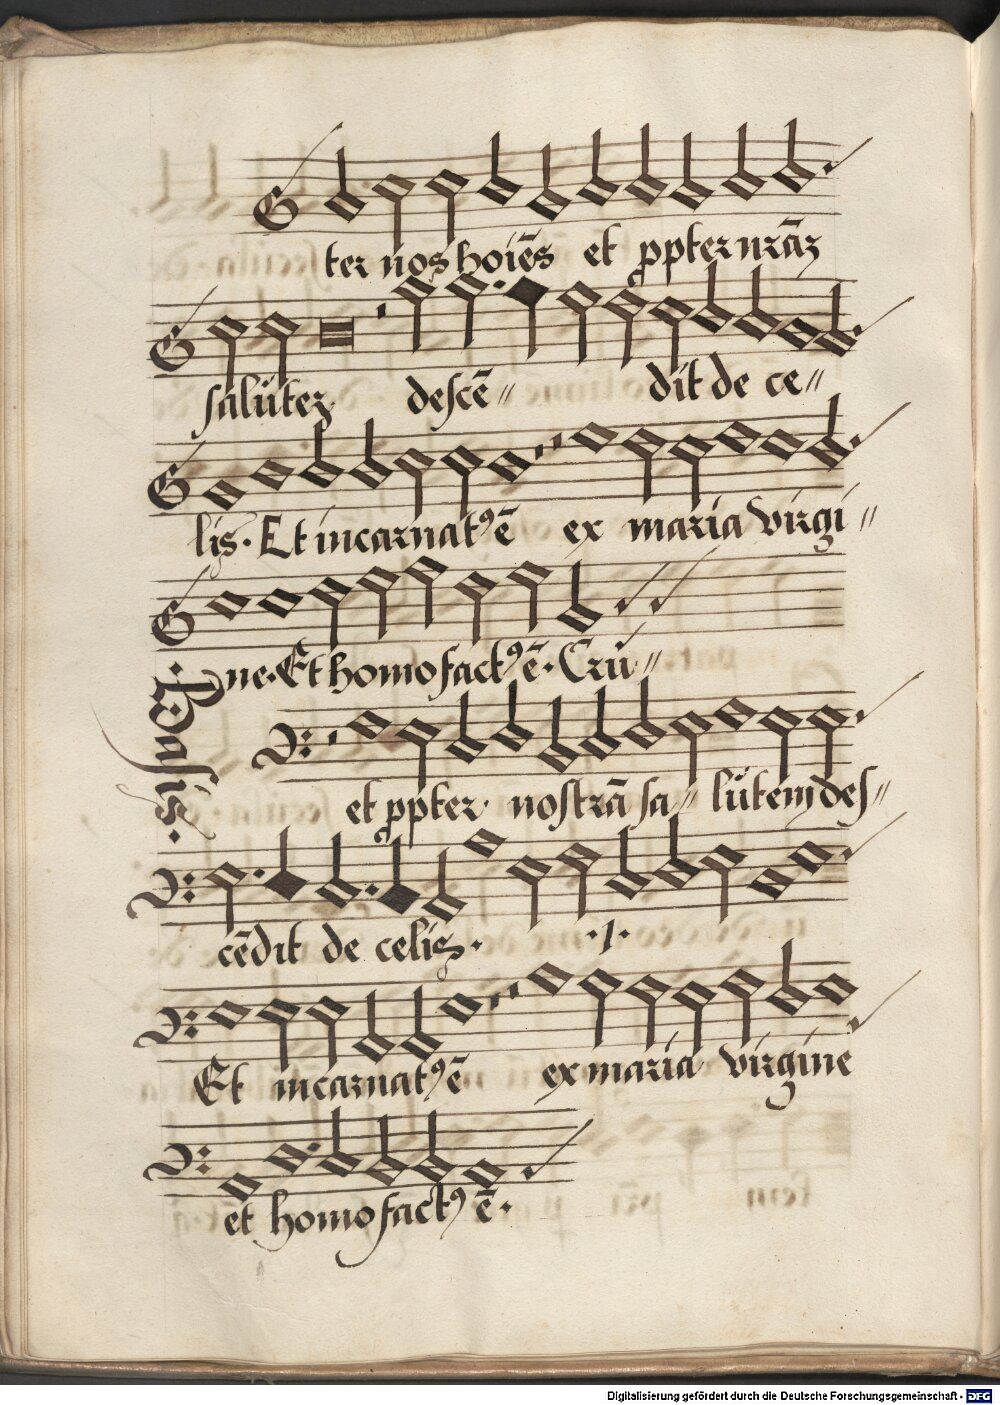 ter nos hoiēs et ꝓpter nr̄aȝ
salutez descē〃 dit de ce〃
lis. Et incarnatꝰ ē ex maria virgi〃
ne. Et homo factꝰ ē. Cru〃
Basis.
et ꝓpter nostrā sa〃 lutem des〃
cēdit de celis. .1.
Et incarnatꝰ ē ex maria virgine
et homo factꝰ ē.
Digitalisierung gefördert durch die Deutsche Forschungsgemeinschaft - DFG